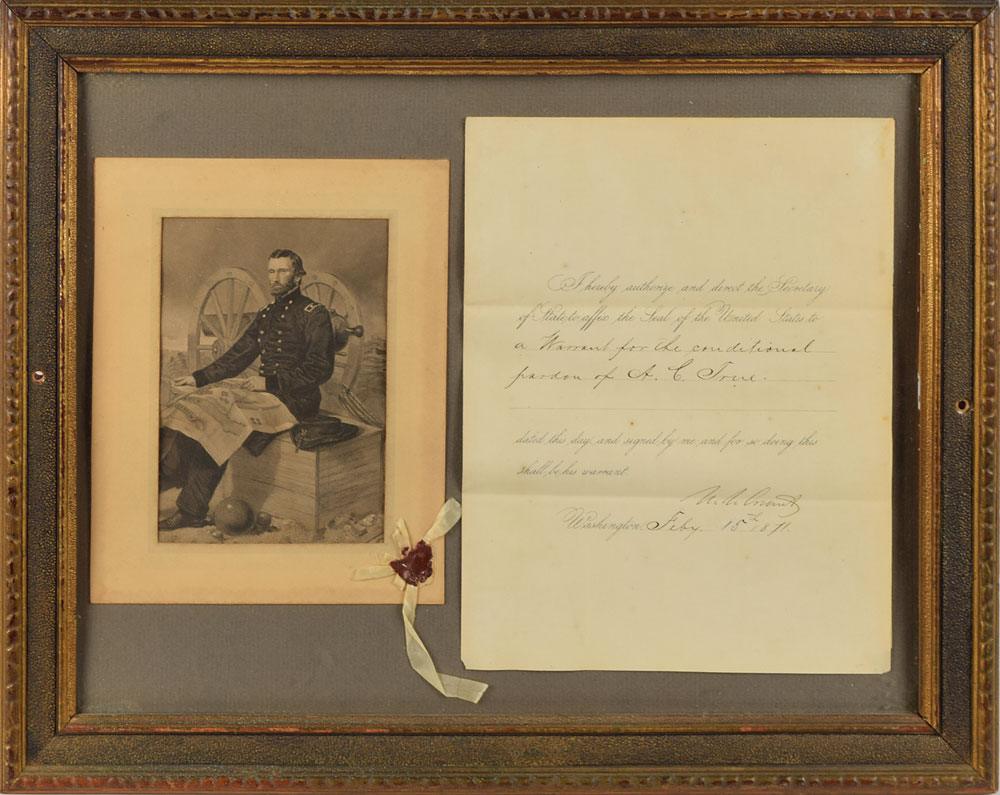 I hereby authorize and direct the Secretary
of State to affix the Seal of the United States to
a Warrant for the conditional
pardon of A. C. True.
dated this day, and signed by me, and for so doing this
shall be his warrant.
U. S. Grant
Washington, Feby. 15th 1871.